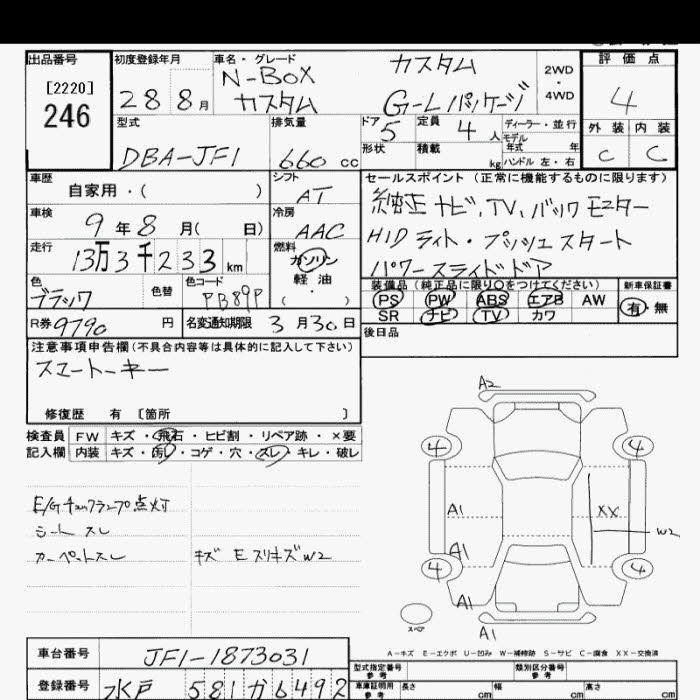 出品番号
[2220]
246
初度登録年月
28 8月
車名・グレード
N-BOX カスタム
カスタム G-Lパッケージ
2WD
・
4WD
評価点
4
外装 内装
C C
型式
DBA-JF1
排気量
660 cc
ドア
5
定員
4人
ディーラー・並行
モデル
年式 年
形状
積載 kg
ハンドル 左・右
車歴
自家用・( )
シフト
AT
セールスポイント(正常に機能するものに限ります)
純正ナビ、TV、バックモニター
HIDライト・プッシュスタート
パワースライドドア
車検
9年8月( 日)
冷房
AAC
走行
13万3千233km
燃料
ガソリン
軽油
( ・ )
色
ブラック
色替
色コード
PB89P
装備品(純正品に限り○をつけてください)
PS PW ABS エアB AW
SR ナビ TV カワ
新車保証書
有・無
R券 9790 円
名変通知期限 3月30日
後日品
注意事項申告欄(不具合内容等は具体的に記入して下さい)
スマートキー
修復歴 有 [箇所 ]
検査員
記入欄
FW キズ・飛石・ヒビ割・リペア跡・×要
内装 キズ・汚れ・コゲ・穴・スレ・キレ・破レ
E/Gチェックランプ点灯
シートスレ
カーペットスレ
キズ E スリキズ W2
A2
4 4
A1 XX W2
A1
4 4
A1
A1
スペア
A-キズ E-エクボ U-凹み W-補修跡 S-サビ C-腐食 XX-交換済
車台番号
JF1-1873031
登録番号
水戸 581 か 6492
型式指定番号
参考
類別区分番号
参考
車庫証明用
参考
長さ cm
幅 cm
高さ cm